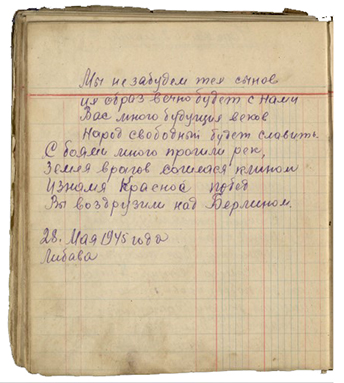 Мы не забудем тех сынов
их образ вечно будет с нами
Вас много будущих веков
Народ свободный будет славить.
С боями много прошли рек,
Земля врагов сошлася клином
И знамя Красной побед
Вы воздрузили над Берлином.
28. Мая 1945 года
Либава